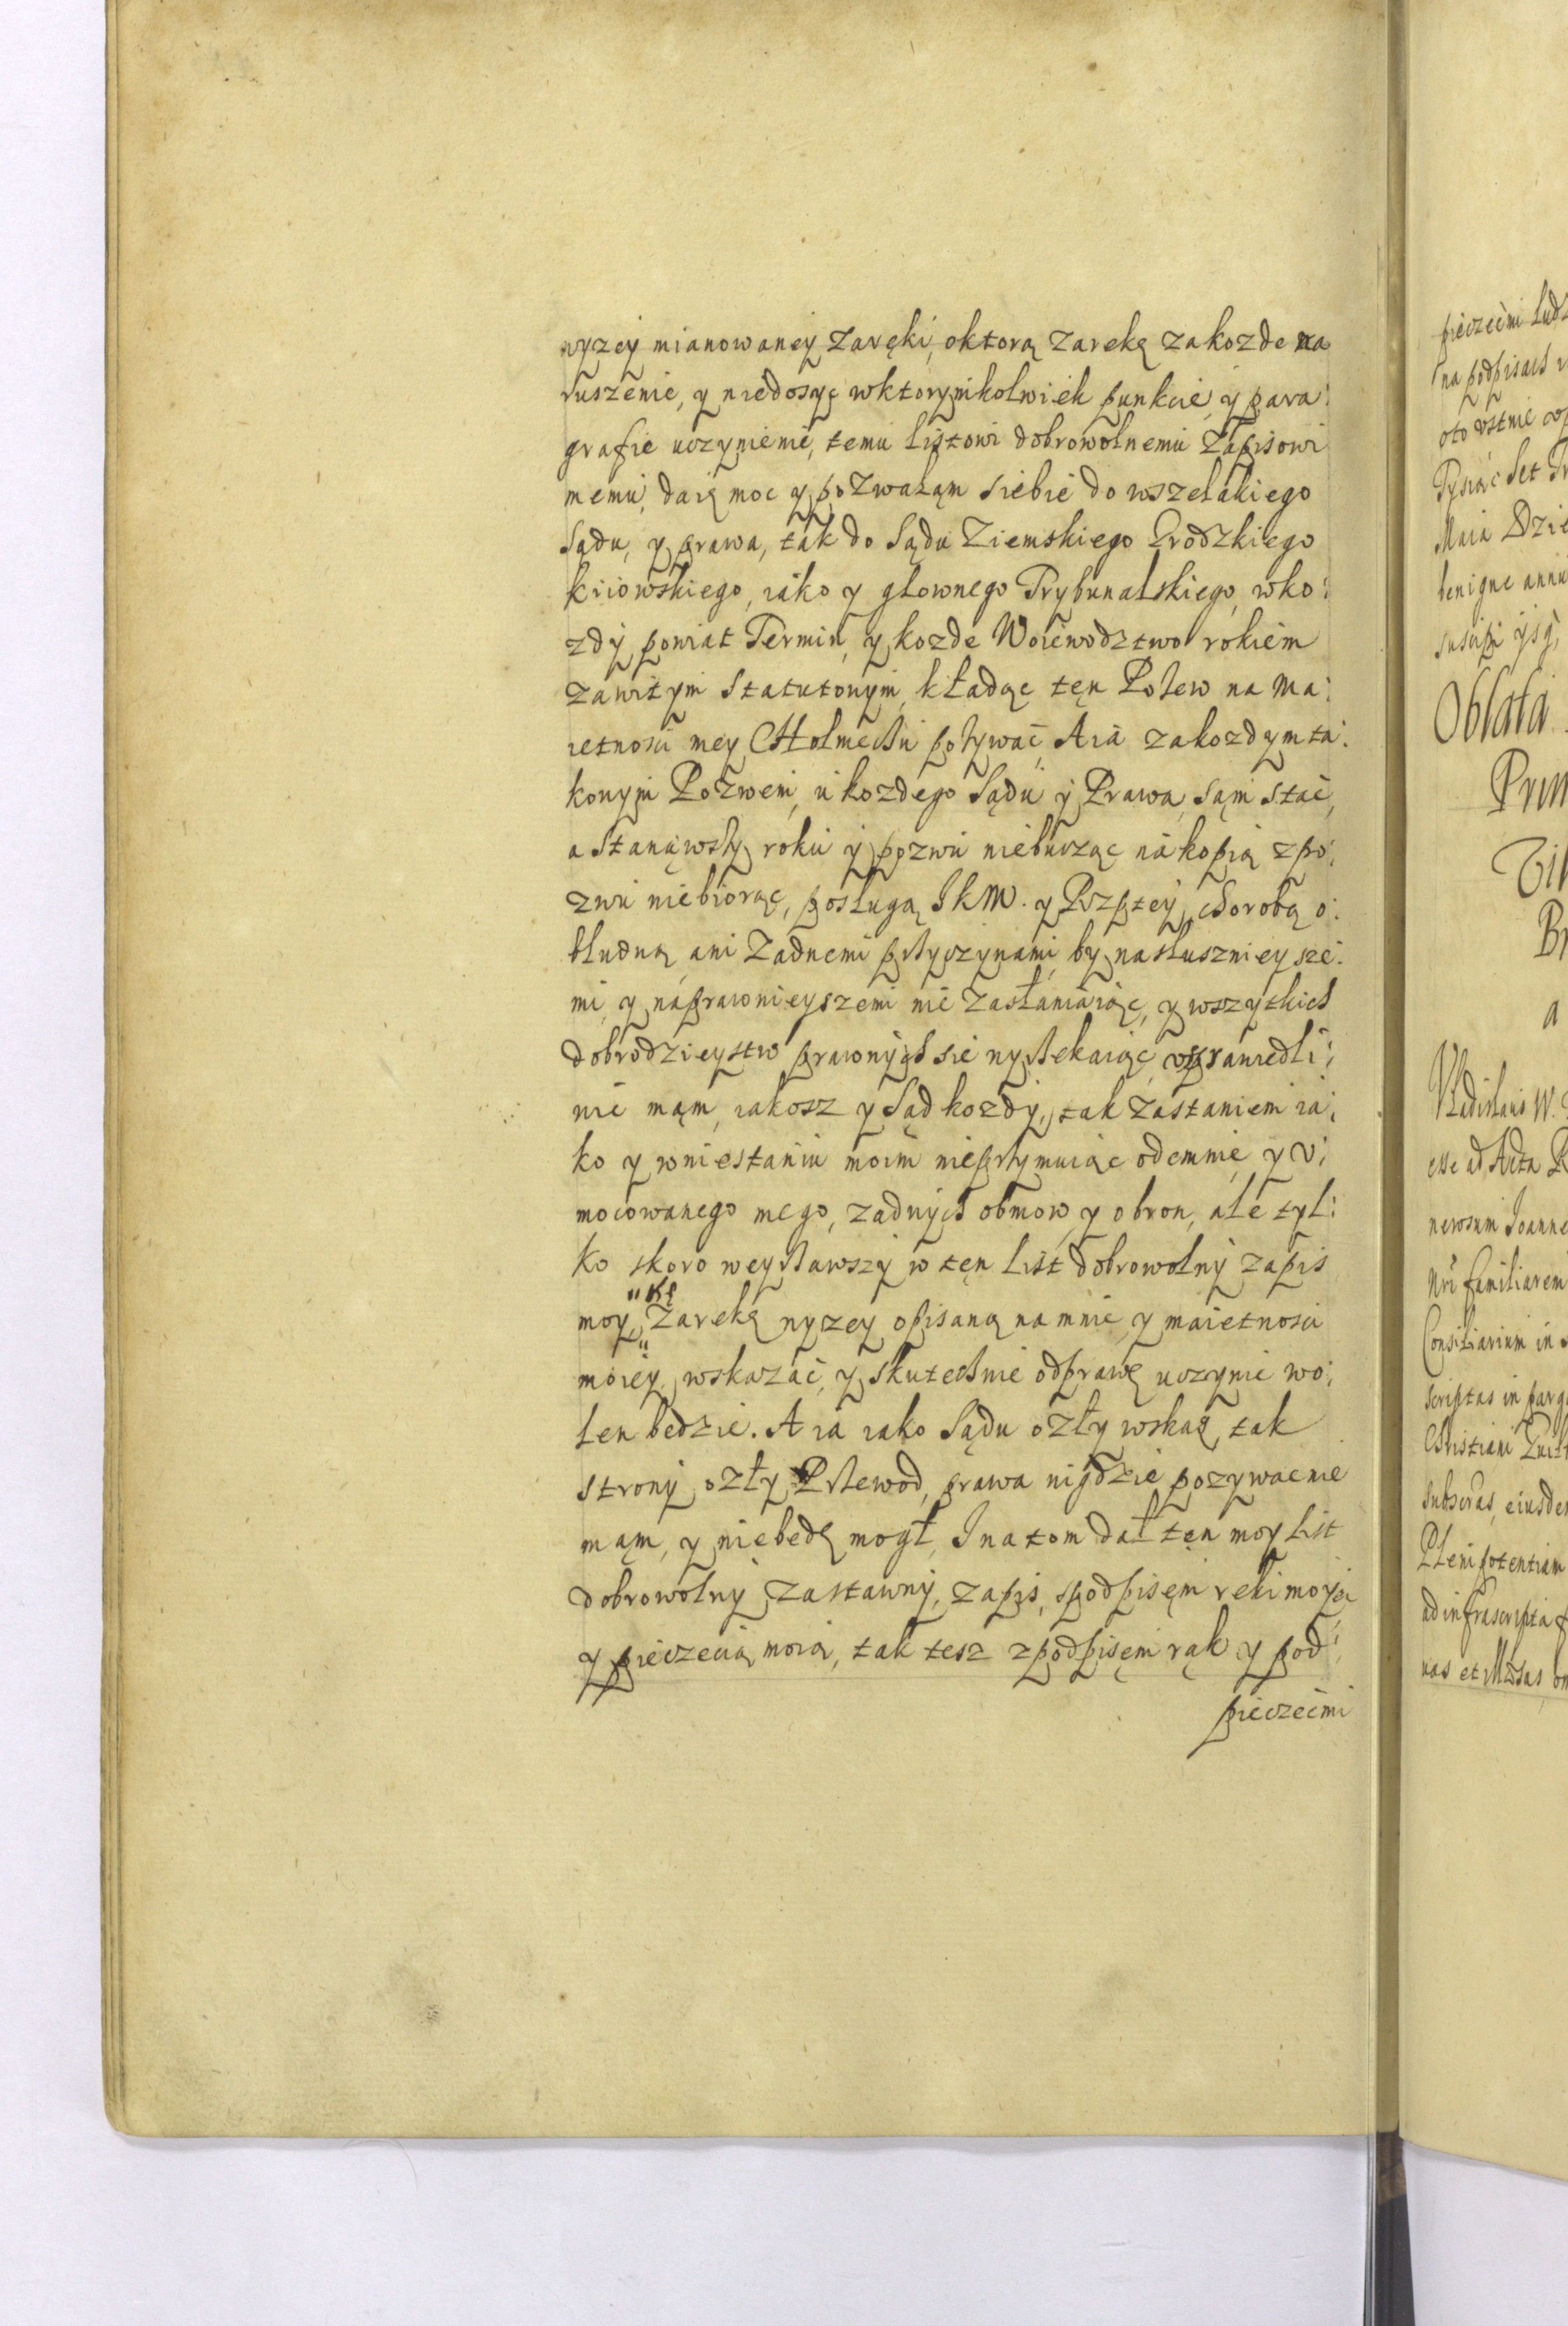 wyzey mianowaney zaręki, oktorą zarekę zakozde na
ruszenie, y niedosyc wktorymkolwiek punkcie, y para:
grafie uczynienie, temu listowi dobrowolnemu zapisowi
memu, daię moc y pozwalam siebie do wszelakiego
Sądu, y prawa, tak do Sądu Ziemskiego Grodzkiego
kiiowskiego, iako y głownego Trybunalskiego, wko:
zdy powiat Termin, y kozde Woiewodztwo rokiem
zawitym Statutowym, kładąc ten Pozew na Ma:
ietnosci mey Chołmechu pozywać, Aia zakozdym ta:
kowym Pozwem, u kozdego Sądu y Prawa, sam stać,
a Stanąwszy roku y pozwu nieburząc na kopią zpo:
zwu niebiorąc, posługą JkM. y Rzptey, chorobą o:
błudną ani Zadnemi przyczynami, by nasłuszniey sze:
mi, y naprawnieyszemi nie zasłaniaiąc, y wszytkich
dobrodzieystw prawnych sie wyrzekaiąc, vsprawiedli:
nie mąm, iakosz y Sąd kozdy, tak zastaniem ia:
ko y wniestaniu moim nieprzymuiąc odemnie, y v:
mocowanego mego, zadnych obmow, y obron, ale tyl:
ko skoro weyrzawszy w ten list dobrowolny zapis
moy, Zarekę wyzey opisaną na mnie, y maietnosci
moiey, wskazać, y skutecznie odprawę uczynic wo:
len bedzie. A ia iako Sądu ozły wskaz, tak
strony ozły Przewod, prawa nigdzie pozywac nie
mąm, y niebedę mogł, I na tom dał ten moy list
dobrowolny zastawny, zapis, spodpisem reki moyei
y pieczecią moią, tak tesz zpodpisem rąk y pod:
pieczećmi
pieczećmi
na podpisach
oto vstnie
Tysiąc Set
Maia
benigne
Oblata
a
esse ad Acta
familiarem
Consiliarium in
scriptas in
Christiani
eiusdem
Plenipotentiam
ad infrascripta